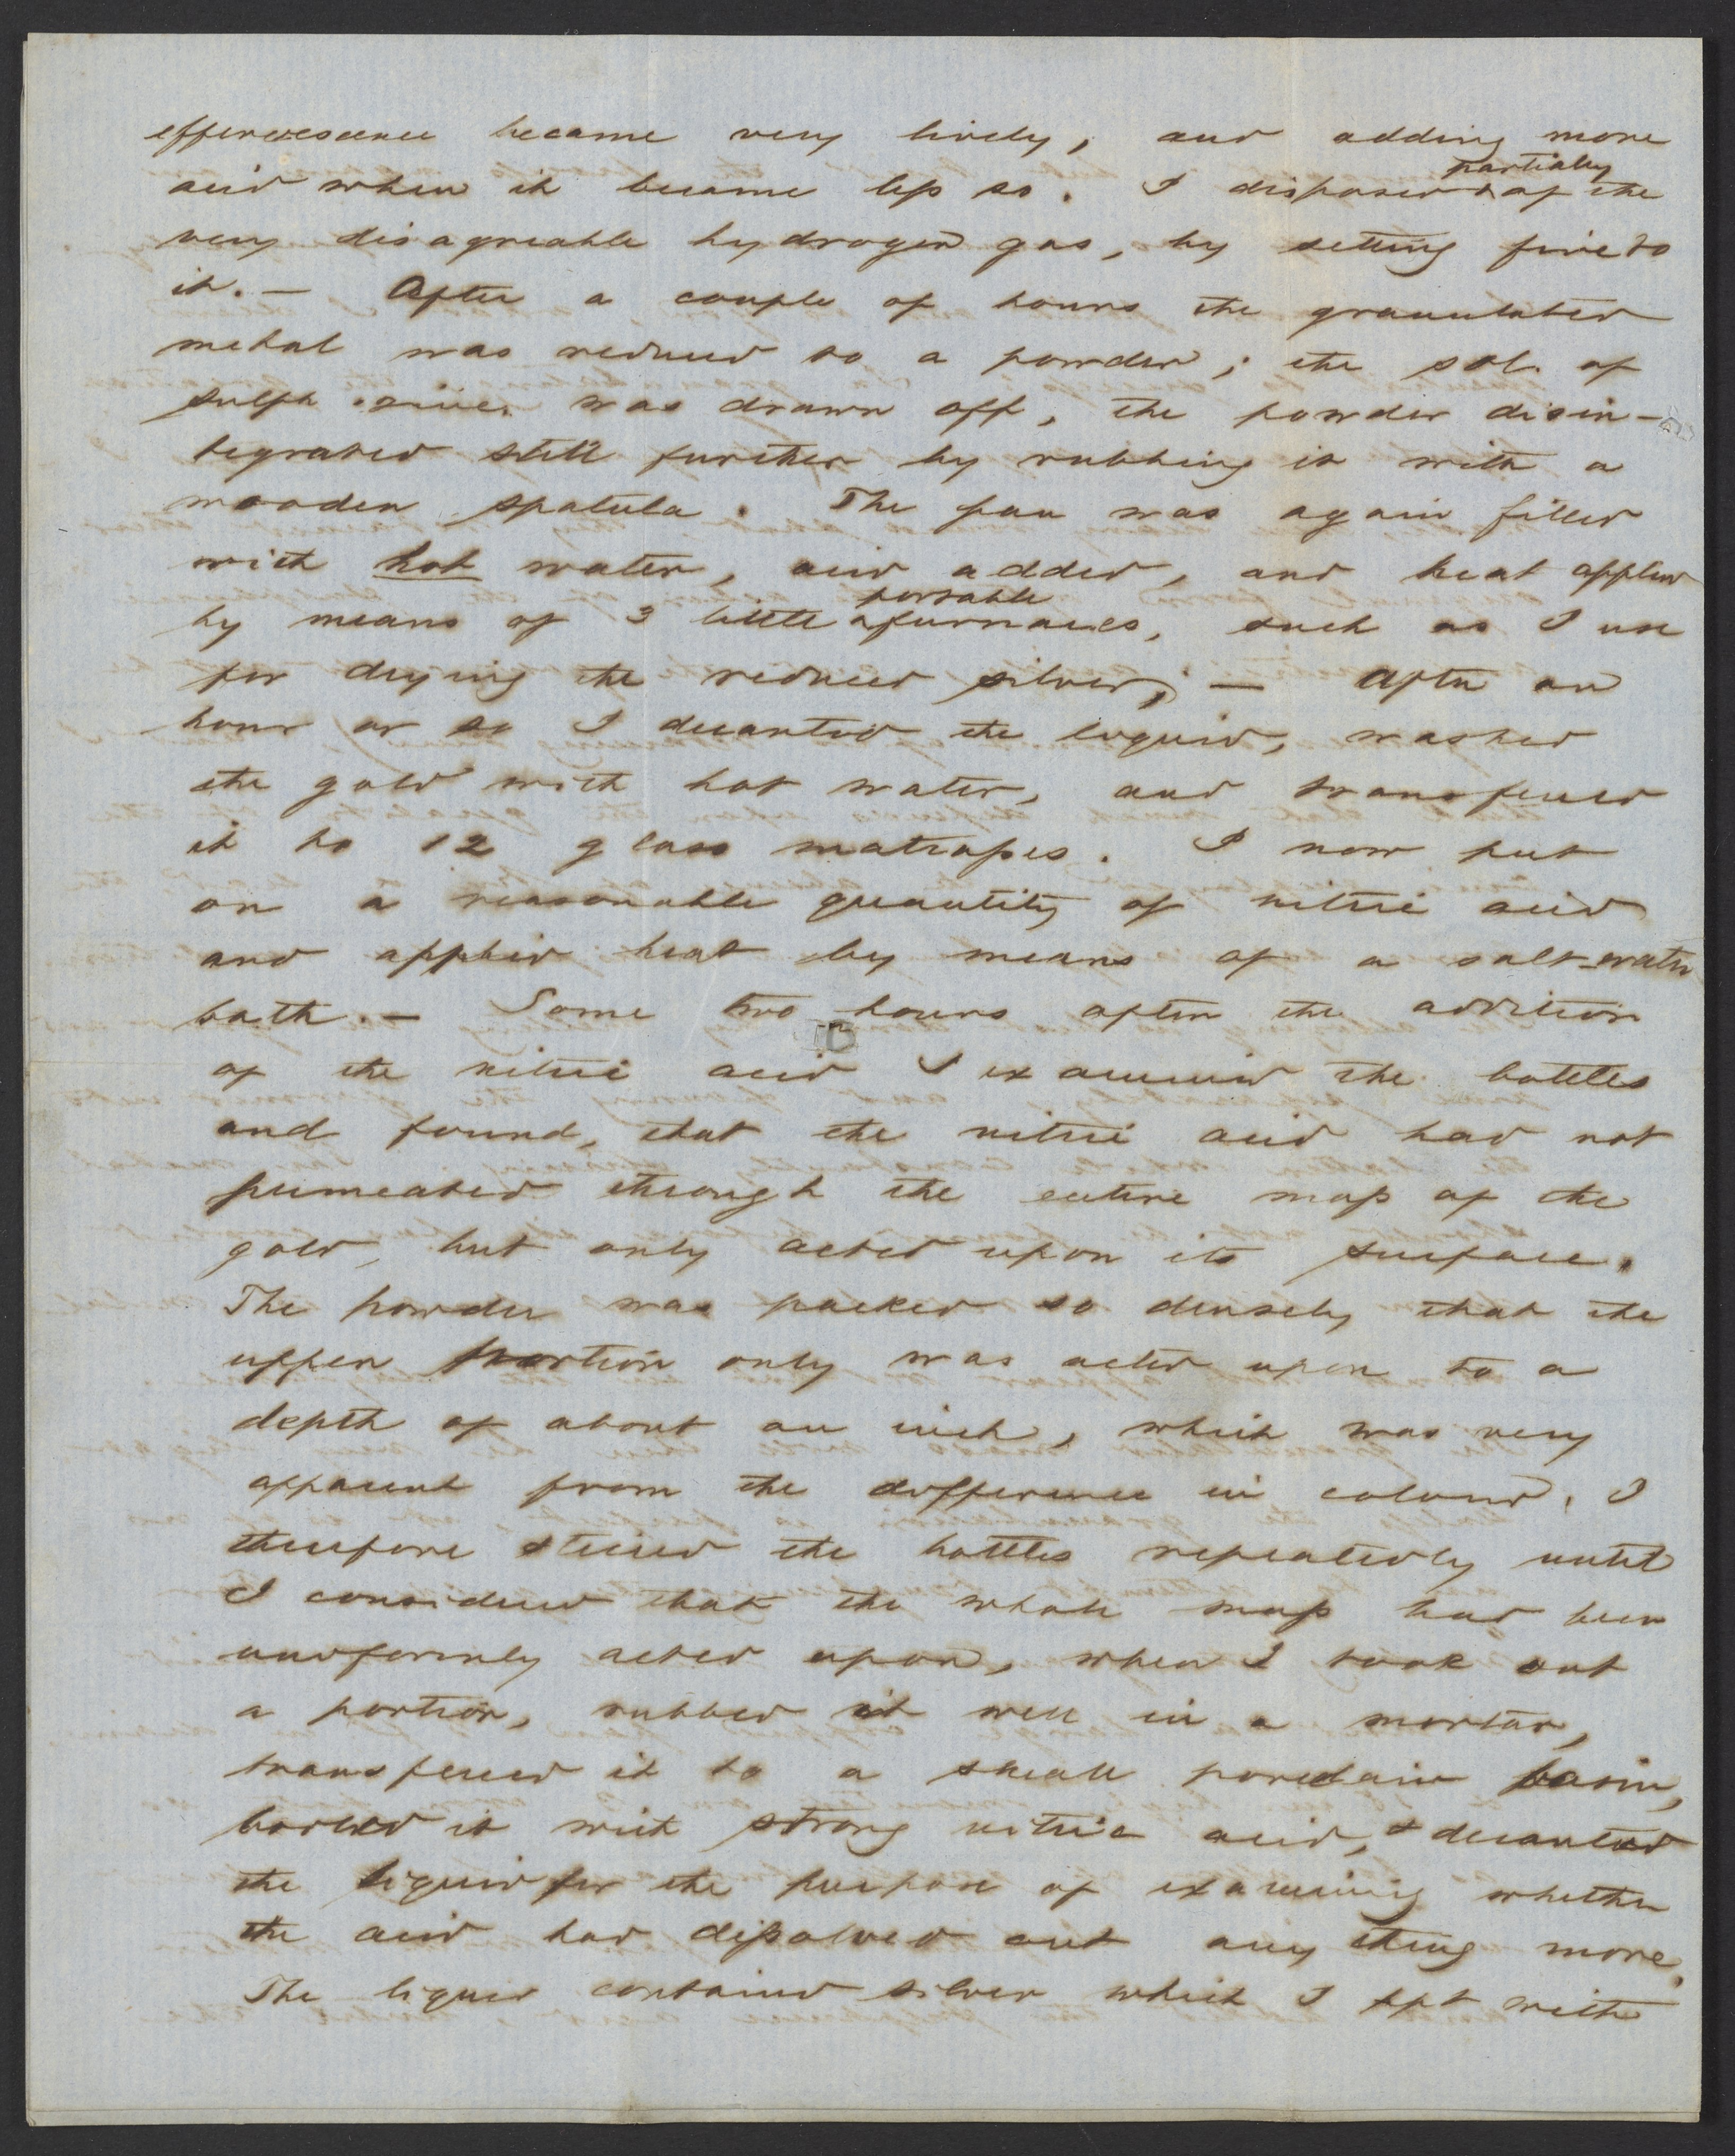 effervescence became very lively, and adding more
acid when it became less so. I disposed partially of the
very disagreable hydrogen gas, by setting fire to
it. — After a couple of hours the granulated
metal was reduced to a powder; the sol. of
sulph. zinc. was drawn off, the powder disin-
tegrated still further by rubbing it with a
wooden spatula. The pan was again filled
with hot water, acid added, and heat applied
by means of 3 little portable furnaces, such as I use
for drying the reduced silver; — After an
hour or so I decanted the liquid, washed
the gold with hot water, and transferred
it to 12 glass matrasses. I now put
on a reasonable quantity of nitric acid
and applied heat by means of a salt-water
bath. — Some two hours after the addition
of the nitric acid I examined the bottles
and found, that the nitric acid had not
permeated through the entire mass of the
gold, but only acted upon its surface.
The powder was packed so densely that the
upper portion only was acted upon to a
depth of about an inch, which was very
apparent from the difference in colour. I
therefore stirred the bottles repeatedly until
I considered that the whole mass had been
uniformly acted upon, when I took out
a portion, rubbed it well in a mortar,
transferred it to a small porcelain basin,
boiled it with strong nitric acid, & decanted
the liquid for the purpose of examining whether
the acid had dissolved out any thing more.
The liquid contained silver which I ppt with